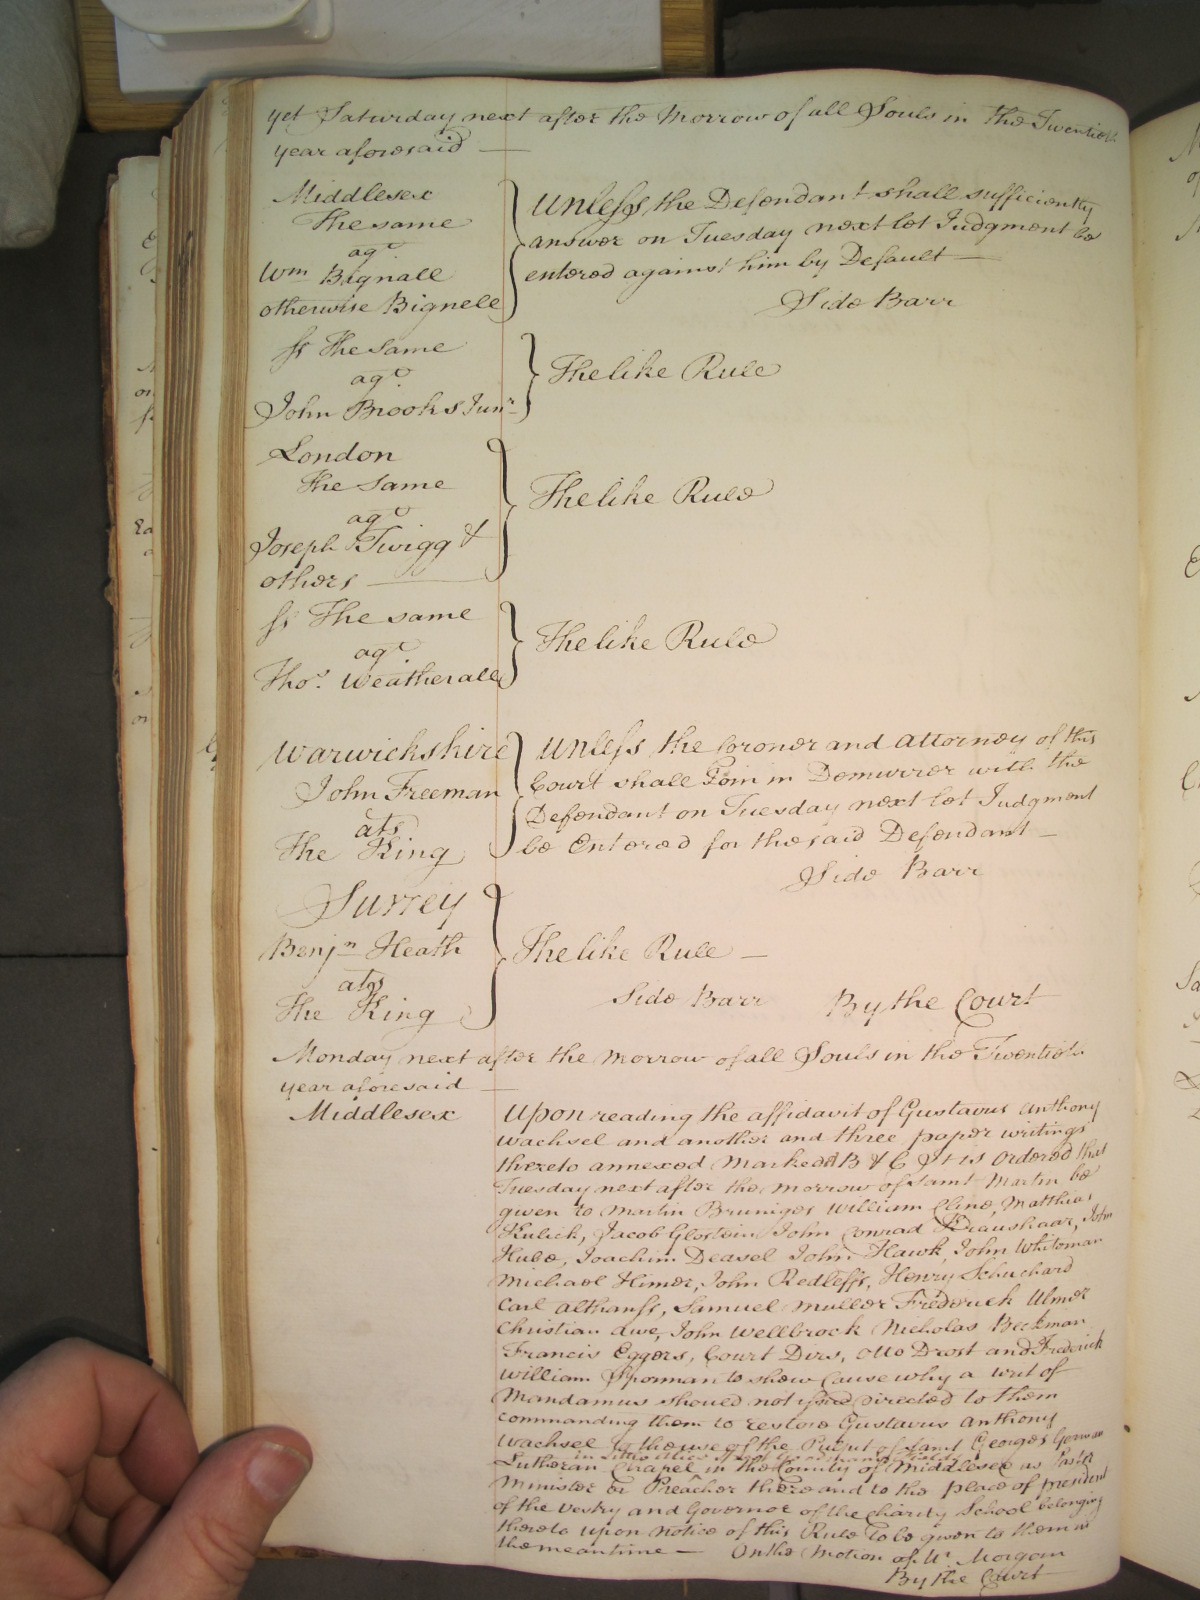 yet Saturday next after the Morrow of all Souls in the Twentieth
year aforesaid
Middlesex
The same
agt
Wm Bagnall
otherwise Bignell
Unless the Defendant shall sufficiently
answer on Tuesday next let Judgment be
entered against him by Default
Side Barr
ss The same
agt
John Brooks Junr
The like Rule
London
The same
agt
Joseph Twigg &
others
The like Rule
ss The same
agt
Thos. Weatherall
The like Rule
Warwickshire
John Freeman
ats
The King
Unless the Coroner and Attorney of this
Court shall Join in Demurrer with the
Defendant on Tuesday next let Judgment
be Entered for the said Defendant
Side Barr
Surrey
Benjn Heath
ats
The King
The like Rule
Side Barr By the Court
Monday next after the Morrow of all Souls in the Twentieth
year aforesaid
Middlesex
Upon reading the affidavit of Gustavus Anthony
Wachsel and another and three paper writings
thereto annexed Marked A B & C It is Ordered that
Tuesday next after the Morrow of Saint Martin be
given to Martin Bruniges William Cline, Matthias
Kulick, Jacob Glostein John Conrad Kraushaar, John
Hule, Joachim Deasel John Hawk, John Whiteman
Michael Himer, John Redless, Henry Schuchard
Carl Althanss, Samuel Muller Frederick Ulmer
Christian Awe, John Wellbrock Nicholas Beckman
Francis Eggers, Court Dirs, Otto Drost and Frederick
William Sporman to shew Cause why a Writ of
Mandamus should not issue directed to them
commanding them to restore Gustavus Anthony
Wachsel to the use of the Pulpit of Saint Georges German
in Little
Lutheran Chapel in the County of Middlesex as Pastor
Minister or Preacher there and to the place of president
of the Vestry and Governor of the Charity School belonging
thereto upon notice of this Rule to be given to them in
the meantime — On the Motion of Mr Morgan
By the Court